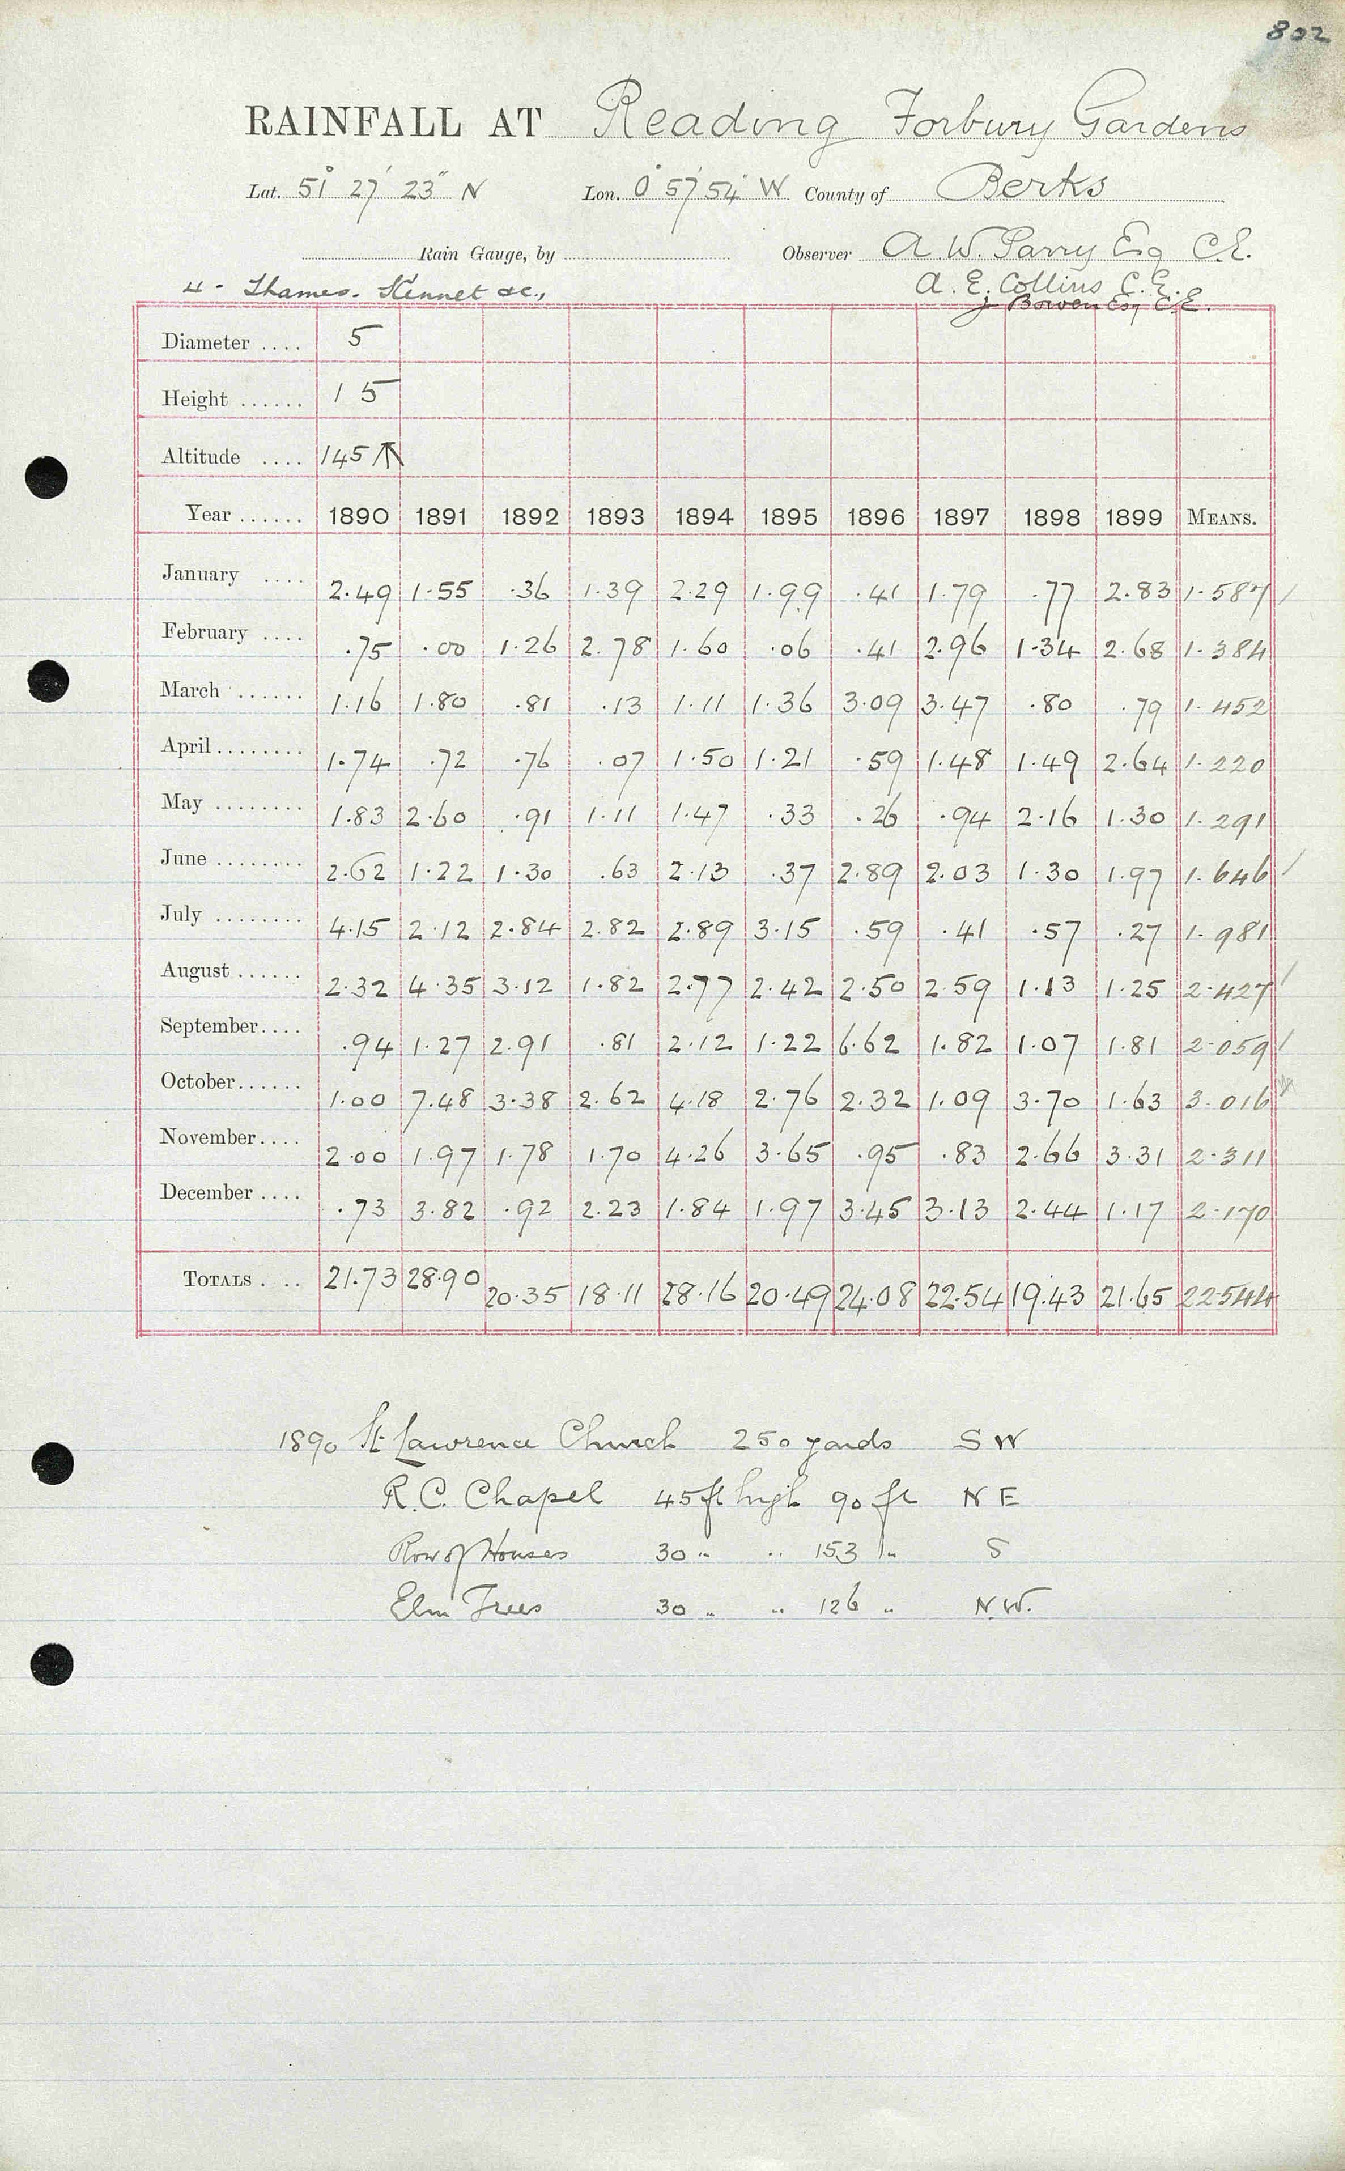 802
RAINFALL AT Reading Forbury Gardens
Lat. 51° 27' 23" N Lon. 0° 57' 54" W County of Berks
Rain Gauge, by Observer A. W. Parry Esq C.E.
4 - Thames. Kennet &c., A. E. Collins C.E.
J Bowen Esq C.E.
Diameter .... 5
Height ...... 1 5
Altitude .... 145
Year ...... 1890 1891 1892 1893 1894 1895 1896 1897 1898 1899 MEANS.
January .... 2.49 1.55 .36 1.39 2.29 1.99 .41 1.79 .77 2.83 1.587
February .... .75 .00 1.26 2.78 1.60 .06 .41 2.96 1.34 2.68 1.384
March ...... 1.16 1.80 .81 .13 1.11 1.36 3.09 3.47 .80 .79 1.452
April ........ 1.74 .72 .76 .07 1.50 1.21 .59 1.48 1.49 2.64 1.220
May ........ 1.83 2.60 .91 1.11 1.47 .33 .26 .94 2.16 1.30 1.291
June ........ 2.62 1.22 1.30 .63 2.13 .37 2.89 2.03 1.30 1.97 1.646
July ........ 4.15 2.12 2.84 2.82 2.89 3.15 .59 .41 .57 .27 1.981
August ...... 2.32 4.35 3.12 1.82 2.77 2.42 2.50 2.59 1.13 1.25 2.427
September.... .94 1.27 2.91 .81 2.12 1.22 6.62 1.82 1.07 1.81 2.059
October...... 1.00 7.48 3.38 2.62 4.18 2.76 2.32 1.09 3.70 1.63 3.016
November.... 2.00 1.97 1.78 1.70 4.26 3.65 .95 .83 2.66 3.31 2.311
December .... .73 3.82 .92 2.23 1.84 1.97 3.45 3.13 2.44 1.17 2.170
TOTALS .... 21.73 28.90 20.35 18.11 28.16 20.49 24.08 22.54 19.43 21.65 22544
1890 St Lawrence Church 250 yards S W
R. C. Chapel 45 ft high 90 ft N E
Row of Houses 30 " " 153 " S
Elm Trees 30 " " 126 " N.W.